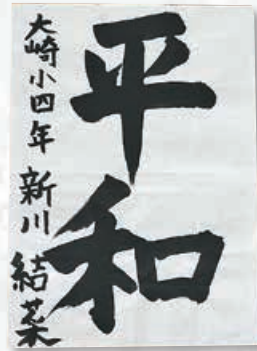 平和
大崎小四年 新川 結菜